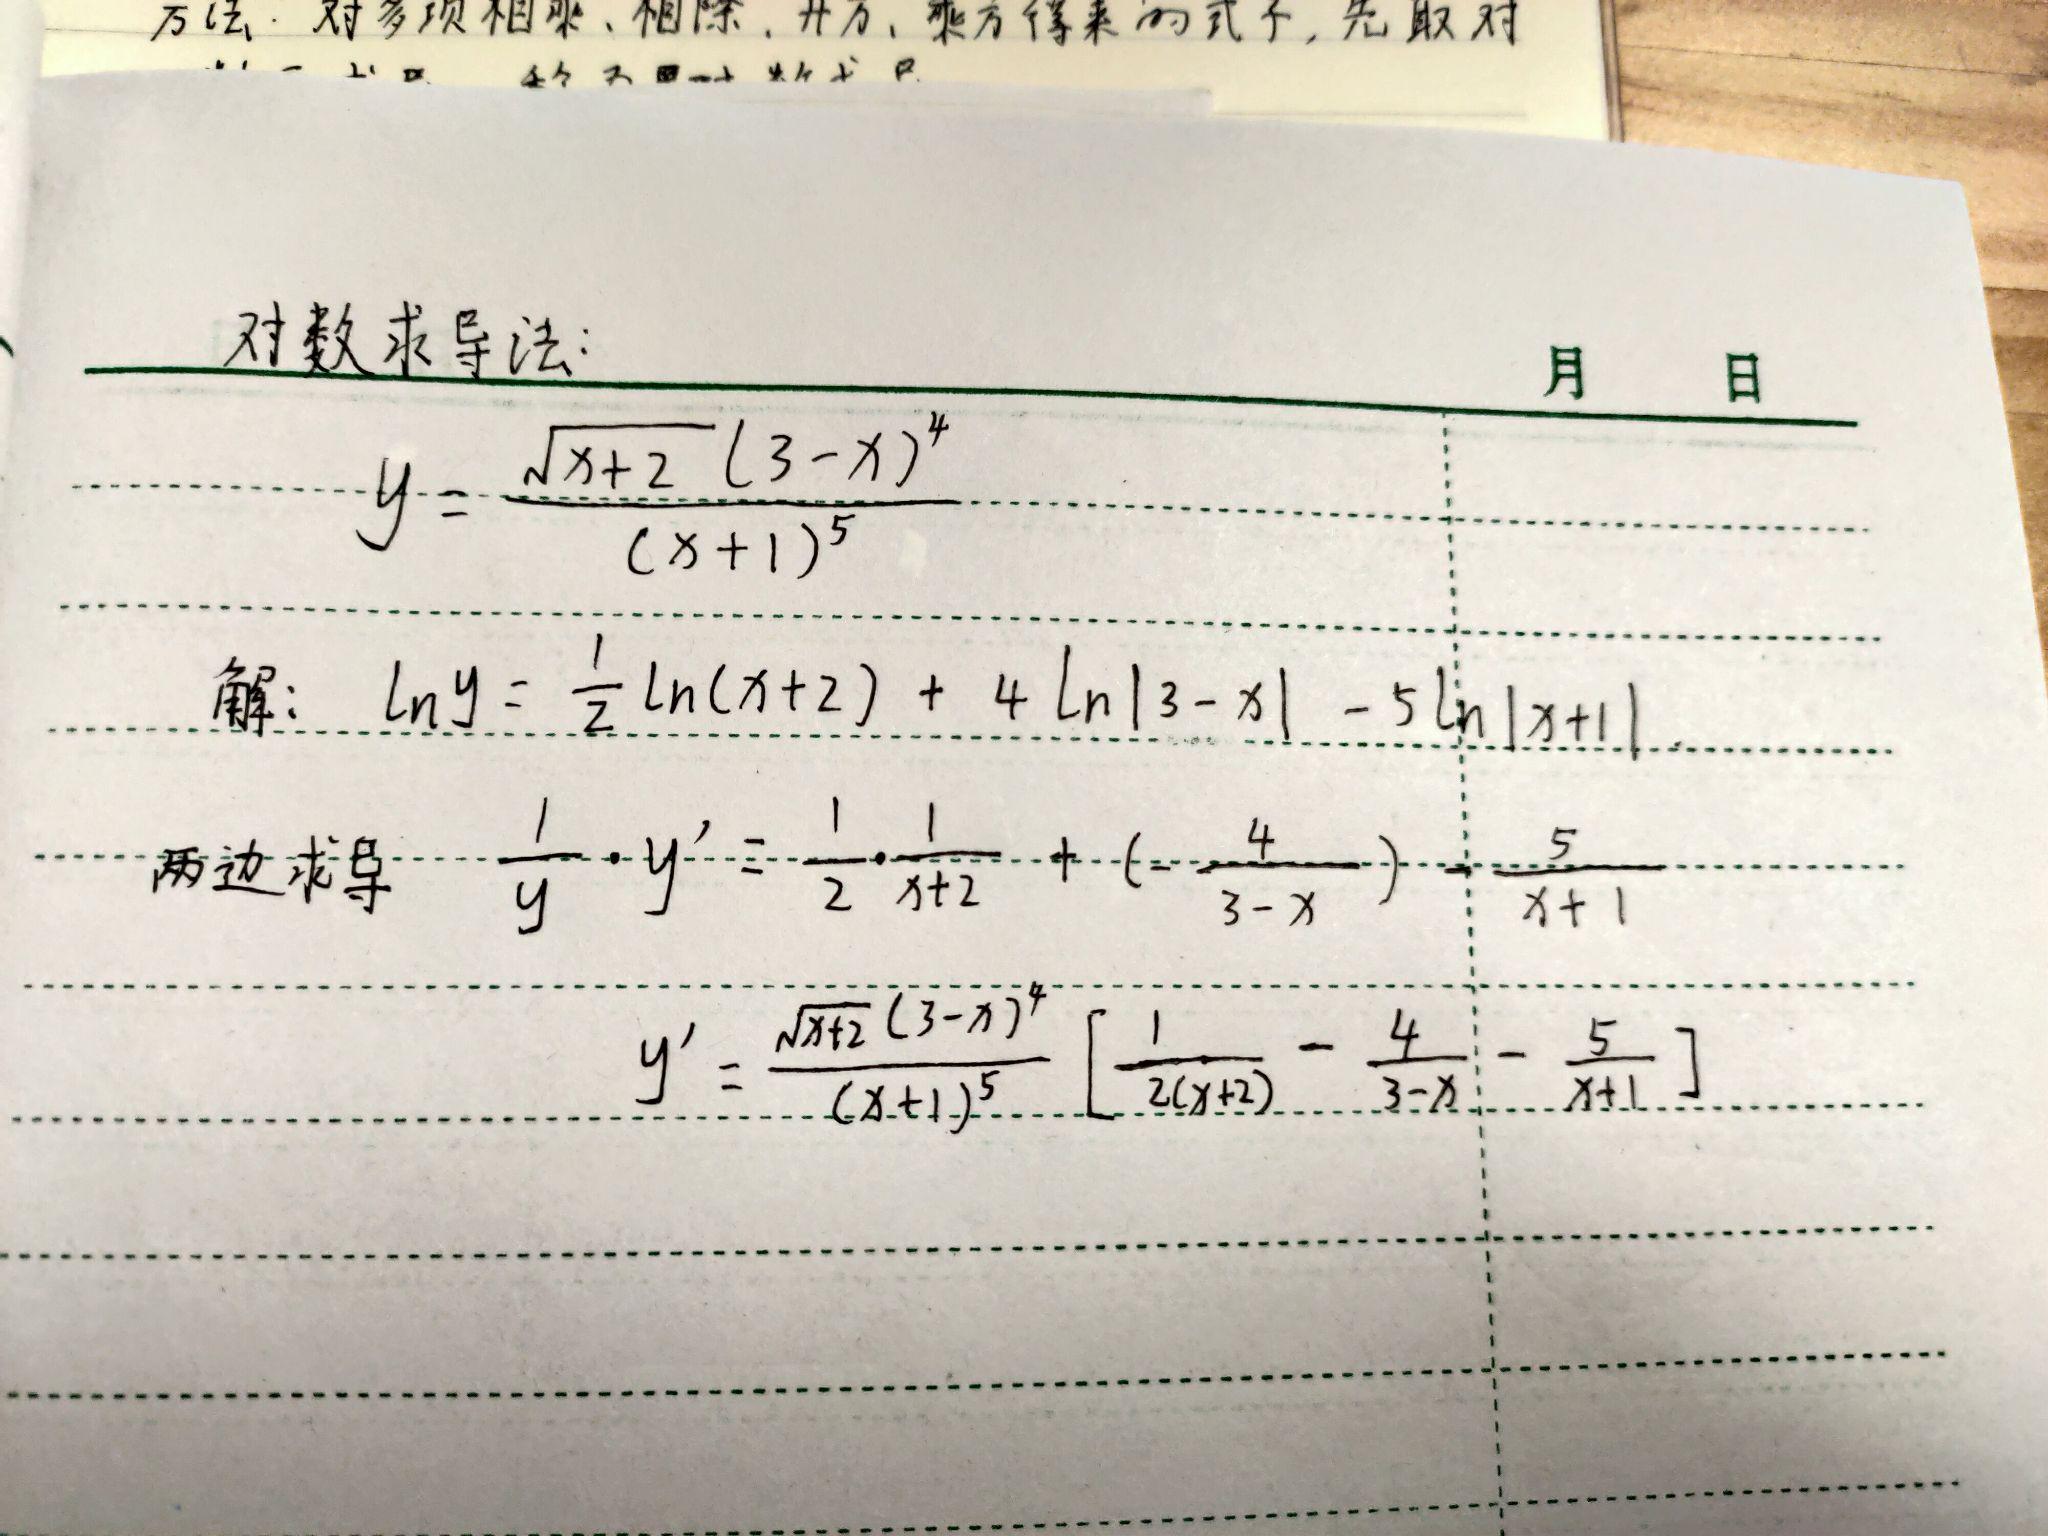 方法: 对多项相乘、相除、开方、乘方得来的式子, 先取对
对数求导法:
月 日
y = \frac{\sqrt{x+2}(3-x)^4}{(x+1)^5}
解: ln y = \frac{1}{2} ln(x+2) + 4 ln|3-x| - 5 ln|x+1|.
两边求导 \frac{1}{y} · y' = \frac{1}{2} · \frac{1}{x+2} + (-\frac{4}{3-x}) - \frac{5}{x+1}
y' = \frac{\sqrt{x+2}(3-x)^4}{(x+1)^5} [\frac{1}{2(x+2)} - \frac{4}{3-x} - \frac{5}{x+1}]